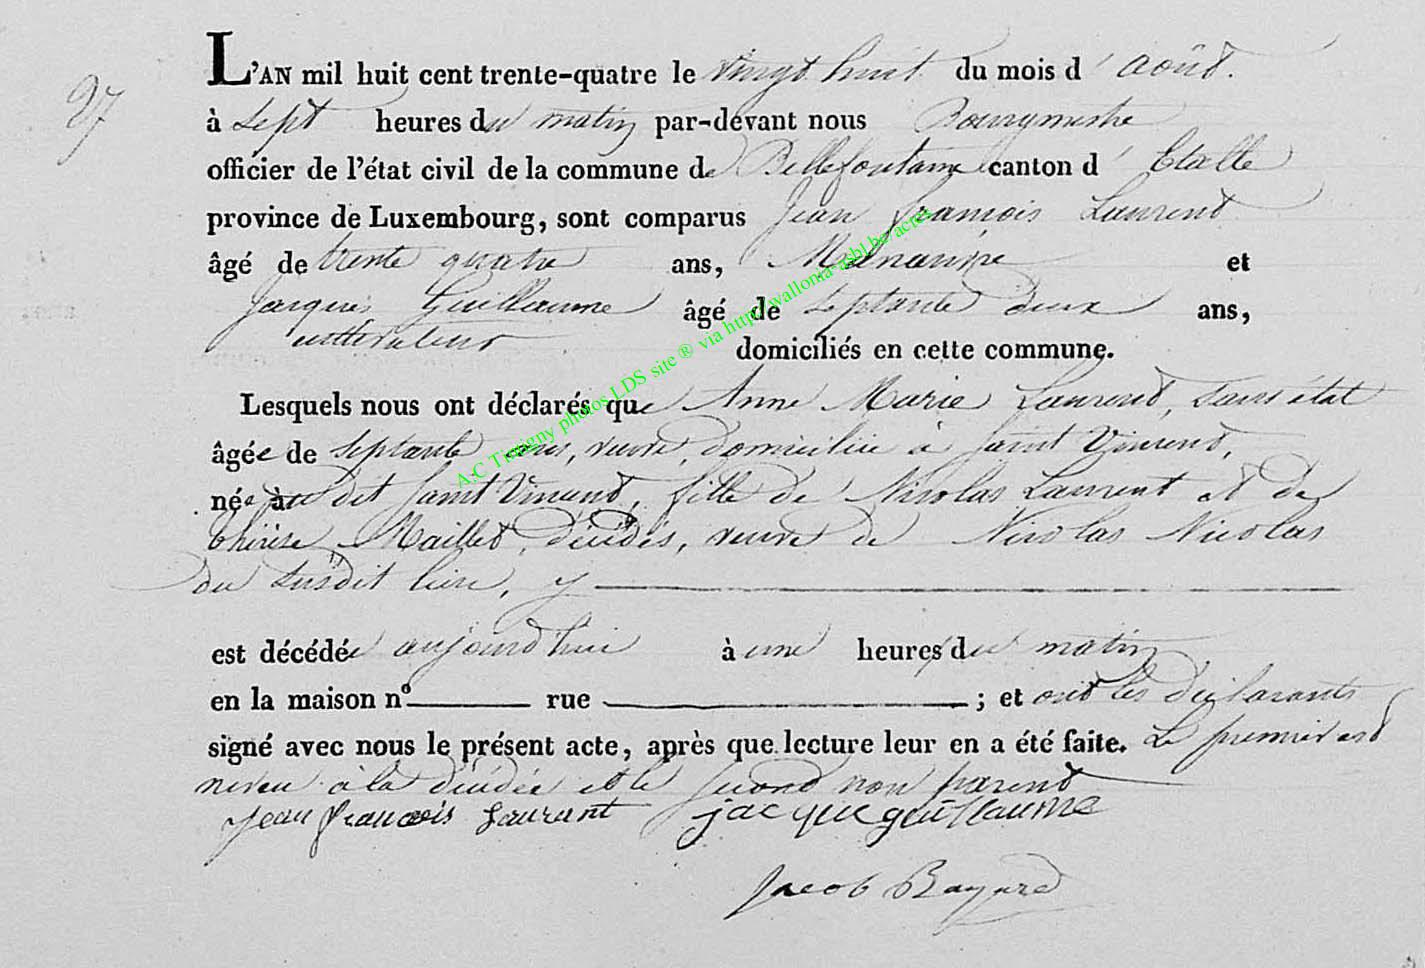 27
L'AN mil huit cent trente-quatre le vingt huit du mois d'Août.
à sept heures du matin par-devant nous Bourgmestre
officier de l'état civil de la commune de Bellefontaine canton d'Etalle
province de Luxembourg, sont comparus Jean françois Laurent
âgé de trente quatre ans, et
Jacques Guillaume âgé de septante deux ans,
cultivateur domiciliés en cette commune.
Lesquels nous ont déclarés que Anne Marie Laurent, sans état
âgée de septante ans, veuve, domiciliée à Saint Vincent,
née au dit Saint Vincent, fille de Nicolas Laurent et de
thérèse Maillet, décédés, veuve de Nicolas Nicolas
du susdit lieu, y
est décédée aujourd'hui à une heures du matin
en la maison nº rue ; et ont les déclarants
signé avec nous le présent acte, après que lecture leur en a été faite. Le premier est
neveu à la décédée et le second non parent
jean françois Laurant jacque guillaume
Jacob Bayard
A.C Tintigny photos LDS site ® via http://wallonia-asbl.be/actes